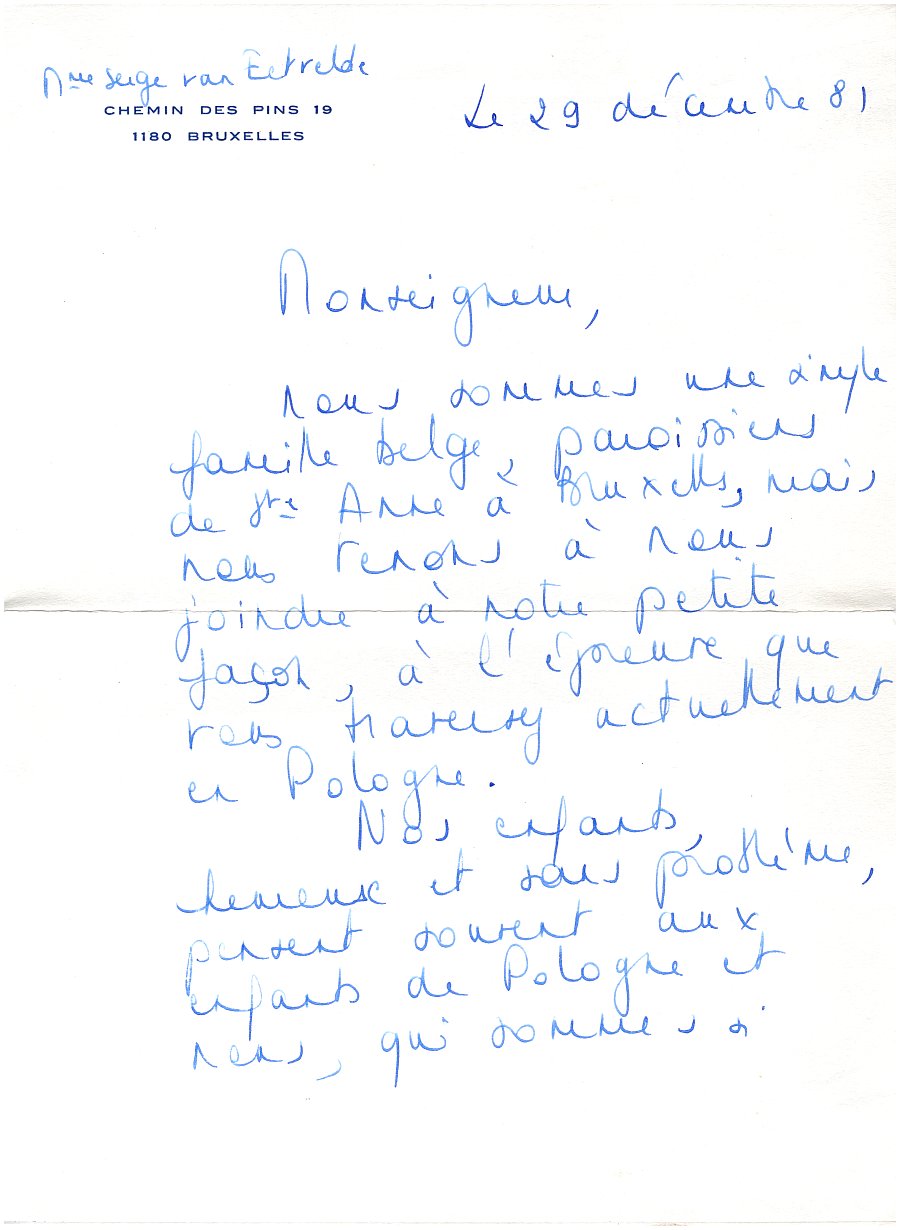 Mme Serge van Eetvelde
CHEMIN DES PINS 19
1180 BRUXELLES
Le 29 décembre 81
Monseigneur,
Nous sommes une simple
famille belge, paroissiens
de Ste Anne à Bruxelles, mais
nous tenons à nous
joindre à notre petite
façon, à l'épreuve que
vous traversez actuellement
en Pologne.
Nos enfants,
heureux et sans problème,
pensent souvent aux
enfants de Pologne et
nous, qui sommes si